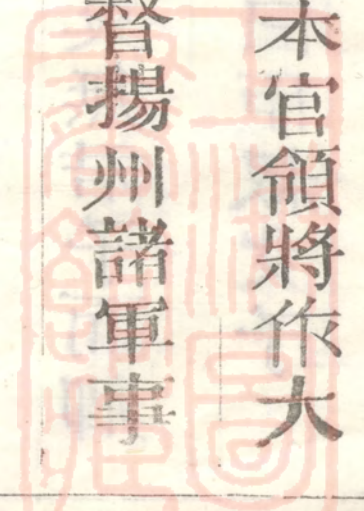 本官領將作大
督揚州諸軍事